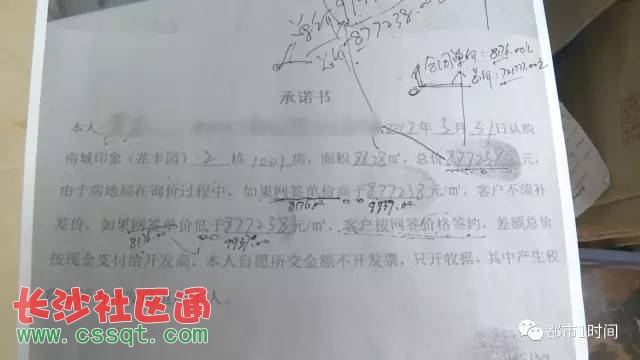 总价877238.00
合同单价：8176.00元
总价：72177.00元
承诺书
本人 2017年3月31日认购
南城印象（兆丰园）2栋1001房，面积88.28m²，总价877238元，
由于房地局在询价过程中，如果网签单价高于877238元/m²，客户不须补
8176.00 9937.00
差价，如果网签单价低于877238元/m²，客户按网签价格签约，差额总价
8176.00 9937.00
按现金支付给开发商，本人自愿所交金额不开发票，只开收据，其中产生税
人。
长沙社区通
www.cssqt.com
都市1时间